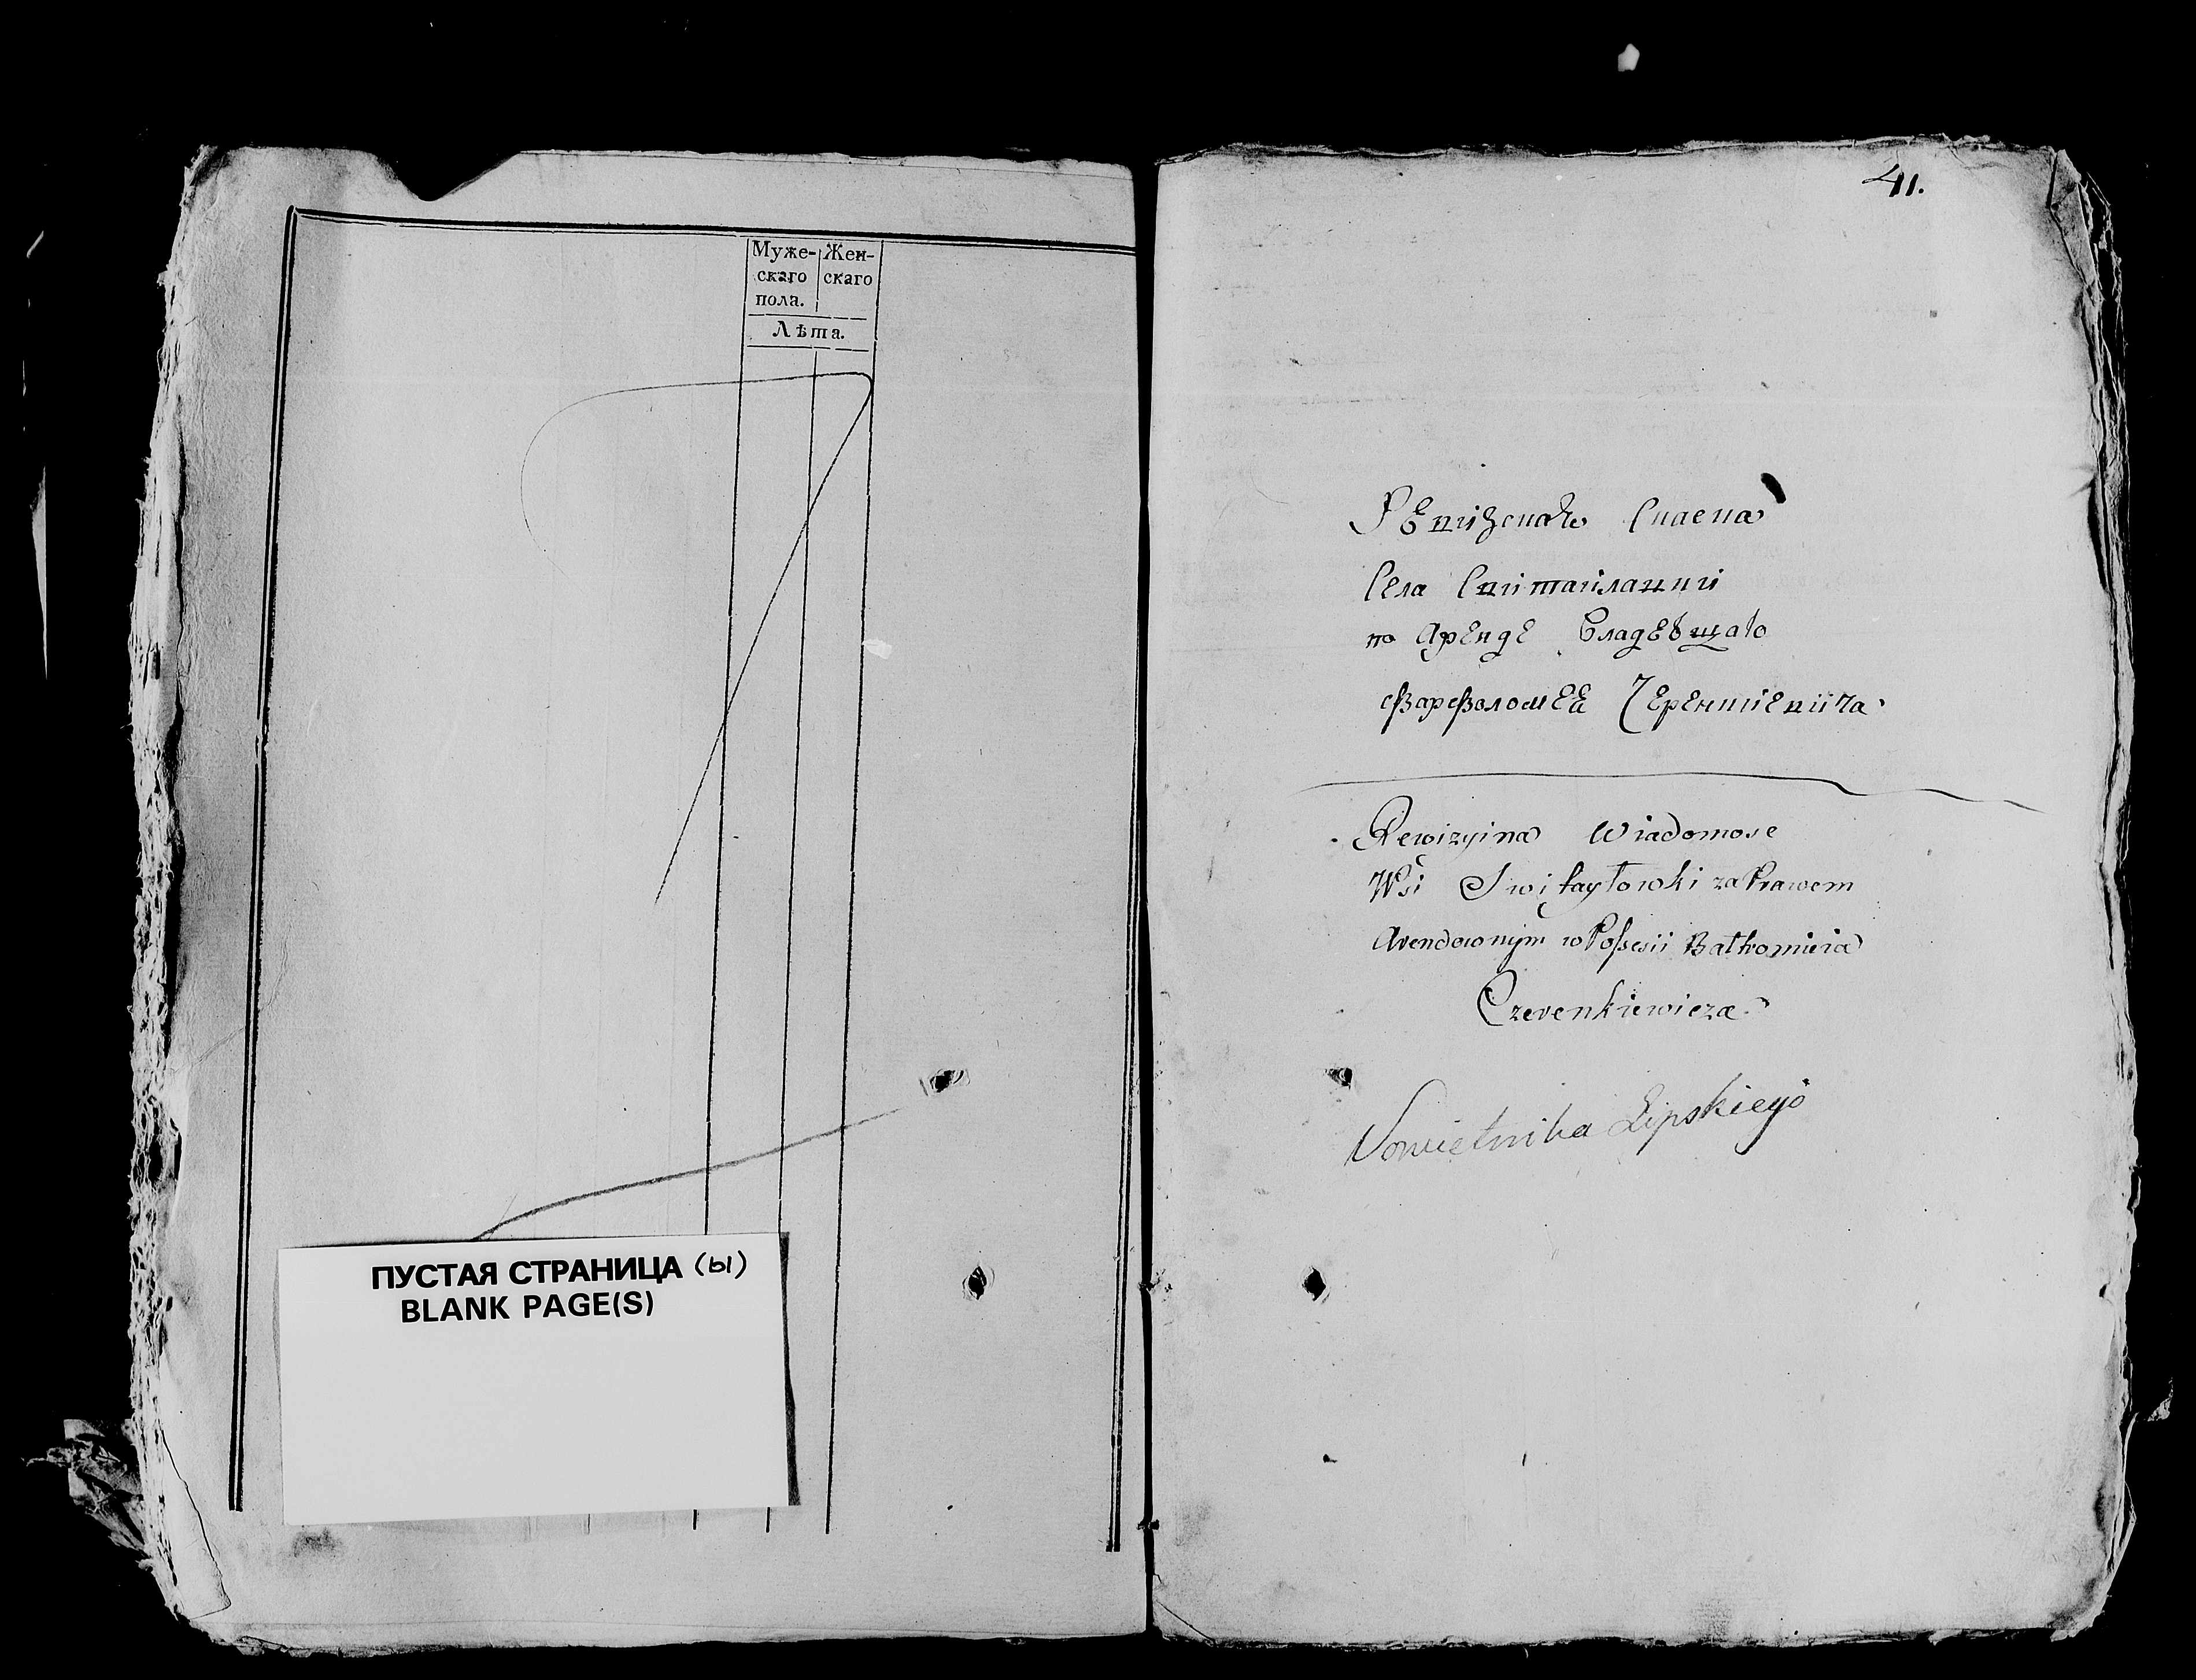 Муже-
скаго
пола.
Жен-
скаго
Лѣта.
ПУСТАЯ СТРАНИЦА (ы)
BLANK PAGE(S)
41.
Села Свитайлавки
по Аренде Владеющаго
Варфоломея Черенкевича
Rewizyina Wiadomosc
Wsi Switaylowki za Prawem
Arendownym w Possesii Bartłomieia
Czerenkiewicza
Sowietnika Lipskiego